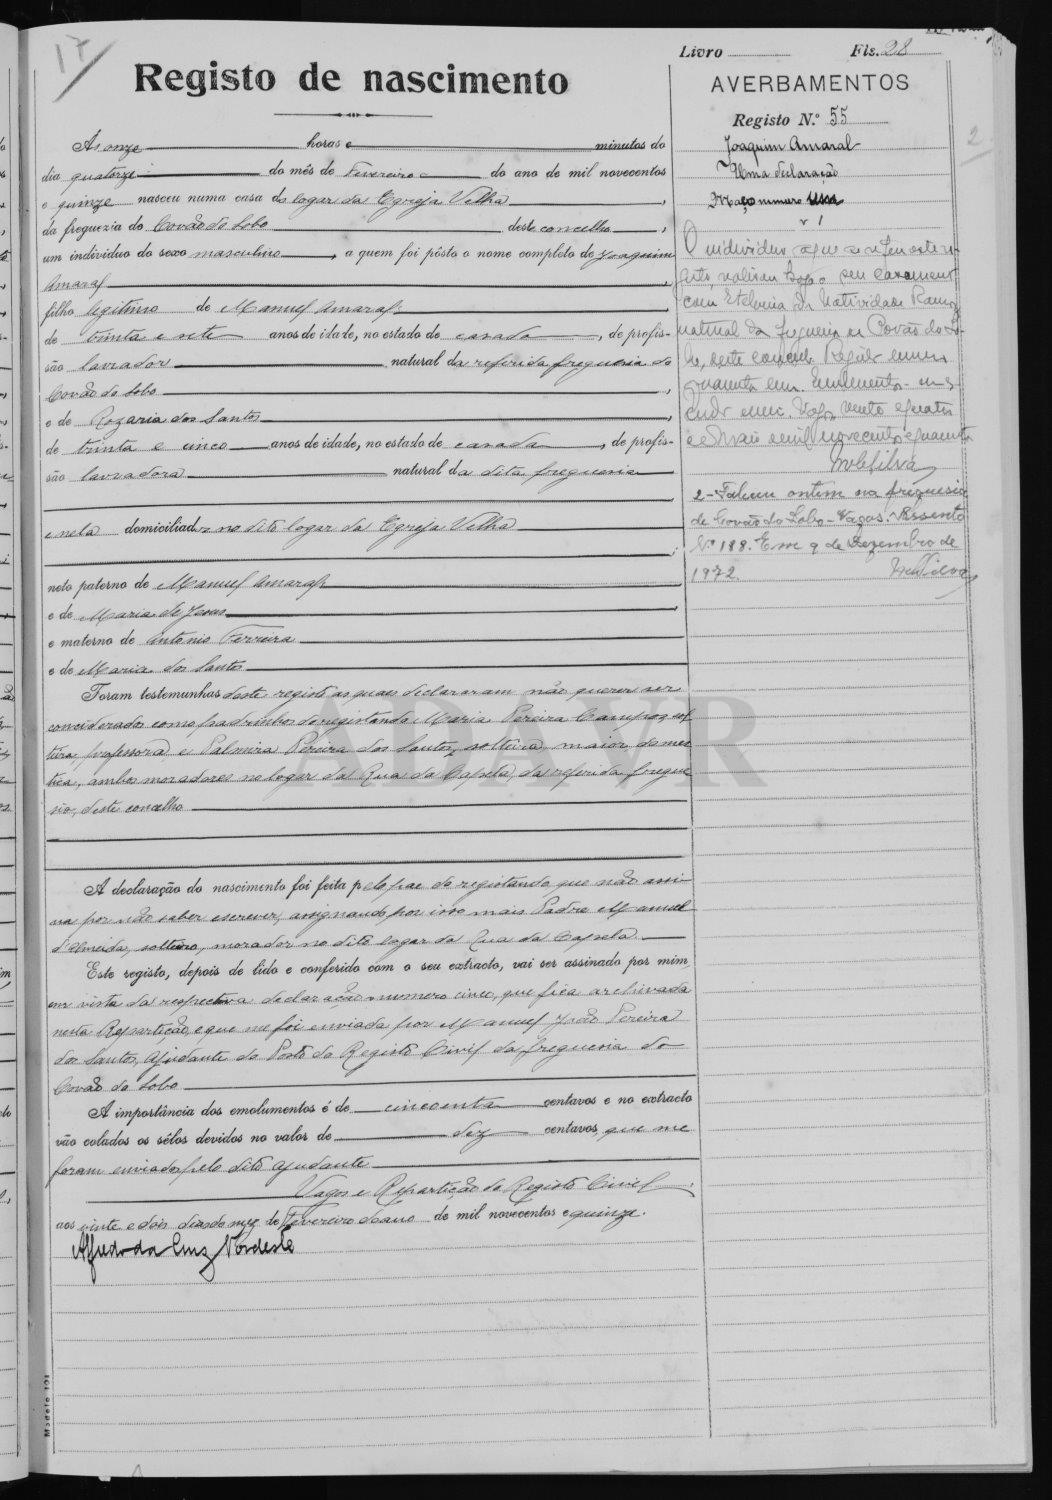 17
Livro Fls. 28
Registo de nascimento
AVERBAMENTOS
Registo N.º 55
Joaquim Amaral
Uma declaração
Maço numero um
1
2
Ás onze horas e minutos do
dia quatorze do mês de Fevereiro do ano de mil novecentos
e quinze nasceu numa casa do logar da Egreja Velha,
da freguezia do Covão do Lobo deste concelho,
um individuo do sexo masculino, a quem foi pôsto o nome completo de Joaquim
Amaral,
filho legitimo de Manuel Amaral,
de trinta e sete anos de idade, no estado de casado, de profis-
são lavrador natural da referida freguesia do
Covão do Lobo,
e de Rozaria dos Santos,
de trinta e cinco anos de idade, no estado de casada, de profis-
são lavradora natural da dita freguesia
e nela domiciliados no dito logar da Egreja Velha;
neto paterno de Manuel Amaral
e de Maria de Jesus,
e materno de Antonio Ferreira
e de Maria dos Santos
Foram testemunhas deste registo as quaes declararam não querer ser
consideradas como padrinhos do registando Maria Pereira Campos, sol
teira, professora e Palmira Pereira dos Santos, solteira, maior, domes
tica, ambas moradores no logar da Rua da Capela, da referida fregue
sia, deste concelho
A declaração do nascimento foi feita pelo pae do registando que não assi
na por não saber escrever, assignando por isso mais Padre Manuel
d'Almeida, solteiro, morador no dito logar da Rua da Capela.
Este registo, depois de lido e conferido com o seu extracto, vai ser assinado por mim
em vista da respectiva declaração numero cinco, que fica archivada
nesta Repartição, e que me foi enviada por Manuel João Pereira
dos Santos, Ajudante do Posto do Registo Civil da freguesia do
Covão do Lobo
A importância dos emolumentos é de cincoenta centavos e no extracto
vão colados os sêlos devidos no valor de dez centavos, que me
foram enviados pelo dito ajudante
Vagos e Repartição do Registo Civil,
aos vinte e dois dias do mez de Fevereiro do ano de mil novecentos e quinze.
Alfredo da Cruz Nordeste
O individuo a que se refere este re-
gisto, realisou hoje o seu casamento
com Etelvina da Natividade Ramos
natural da freguesia de Covão do Lo-
bo, deste concelho. Registo
quarenta e um.
Vagos, vinte e quatro
de Maio de mil novecentos e quarenta
2 - Faleceu ontem na freguesia
de Covão do Lobo - Vagos. Assento
Nº 188. Em 9 de Dezembro de
1972.
ADAVR
Modelo 101